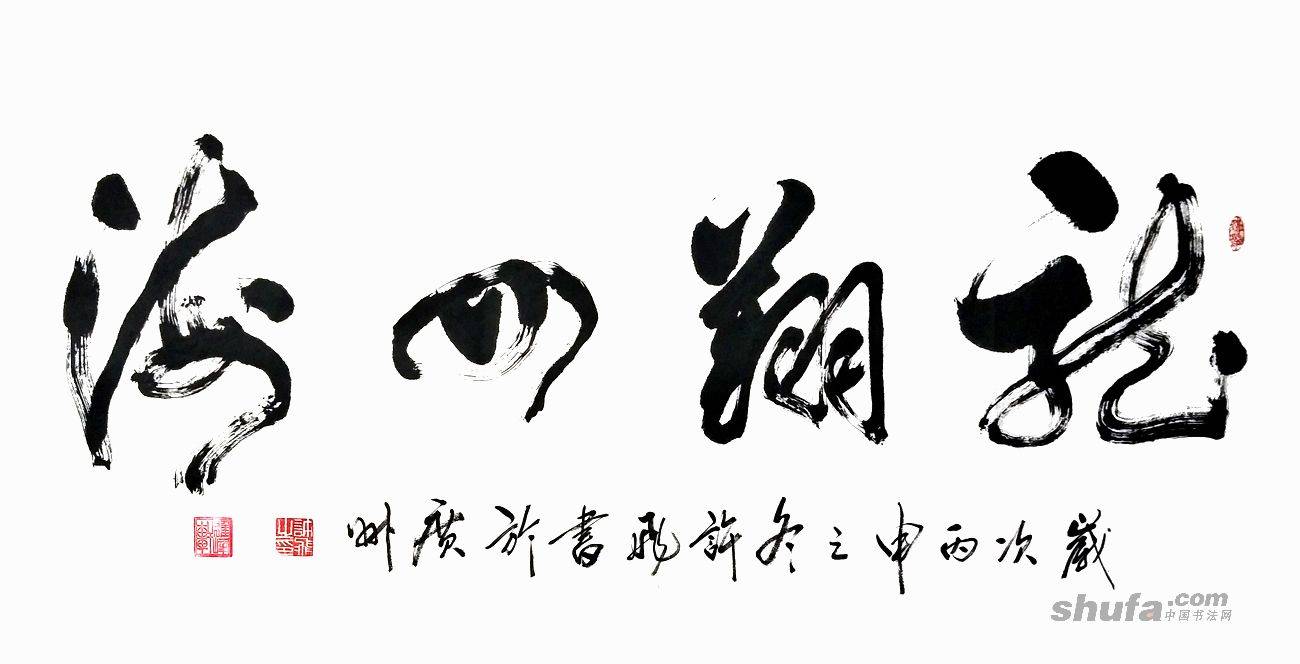 龍翔四海
歲次丙申之冬許飛書於廣州
許飛之印
shufa.com
中国书法网